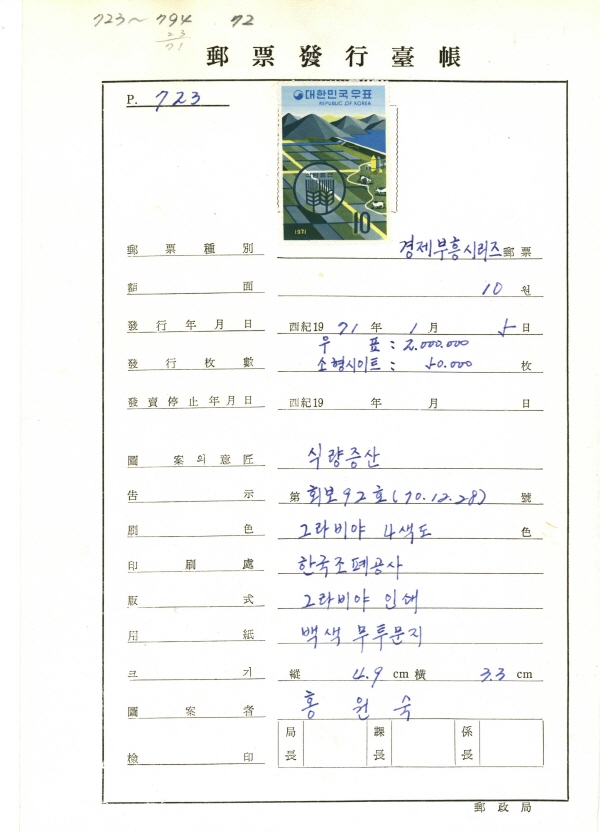 723~794 72
23
71
郵票發行臺帳
P. 723
대한민국우표
REPUBLIC OF KOREA
식량증산
1971 10
郵票種別 경제부흥시리즈郵票
額面 10 원
發行年月日 西紀19 71 年 1 月 5 日
우 표 : 2.000.000
發行枚數 소형시이트 : 50.000 枚
發賣停止年月日 西紀19 年 月 日
圖案의意匠 식량증산
告示 第 회보92호(70.12.28) 號
刷色 그라비야 4색도 色
印刷處 한국조폐공사
版式 그라비야 인쇄
用紙 백색 무투문지
크기 縱 4.9 cm 橫 3.3 cm
圖案者 홍원숙
檢印 局長 課長 係長
郵政局